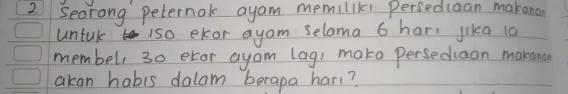 2 Seorong peternak ayam memiliki persediaan makanan
untuk 150 ekor ayam selama 6 hari jika ia
membeli 30 ekor ayam lagi maka persediaan makanan
akan habis dalam berapa hari?